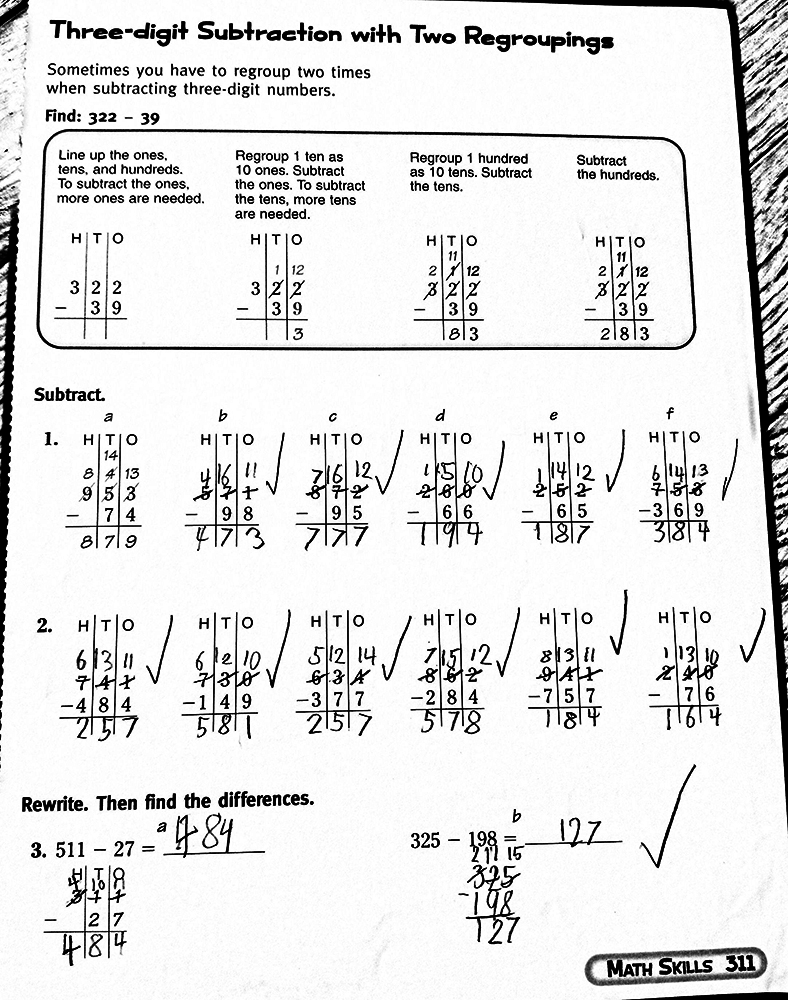 Three-digit Subtraction with Two Regroupings
Sometimes you have to regroup two times
when subtracting three-digit numbers.
Find: 322 – 39
Line up the ones,
tens, and hundreds.
To subtract the ones,
more ones are needed.
H T O
3 2 2
– 3 9
Regroup 1 ten as
10 ones. Subtract
the ones. To subtract
the tens, more tens
are needed.
H T O
1 12
3 2 2
– 3 9
3
Regroup 1 hundred
as 10 tens. Subtract
the tens.
H T O
11
2 1 12
3 2 2
– 3 9
8 3
Subtract
the hundreds.
H T O
11
2 1 12
3 2 2
– 3 9
2 8 3
Subtract.
a b c d e f
1. H T O H T O H T O H T O H T O H T O
14
8 4 13 4 16 11 7 16 12 1 15 10 1 14 12 6 14 13
9 5 3 5 7 1 8 7 2 2 6 0 2 5 2 7 5 3
– 7 4 – 9 8 – 9 5 – 6 6 – 6 5 – 3 6 9
8 7 9 4 7 3 7 7 7 1 9 4 1 8 7 3 8 4
2. H T O H T O H T O H T O H T O H T O
6 13 11 6 12 10 5 12 14 7 15 12 8 13 11 1 13 10
7 4 1 7 3 0 6 3 4 8 6 2 9 4 1 2 4 0
– 4 8 4 – 1 4 9 – 3 7 7 – 2 8 4 – 7 5 7 – 7 6
2 5 7 5 8 1 2 5 7 5 7 8 1 8 4 1 6 4
Rewrite. Then find the differences.
a b
3. 511 – 27 = 484 325 – 198 = 127
H T O
4 10
1 1
– 2 7
4 8 4
2 11 15
325
– 198
127
MATH SKILLS 311